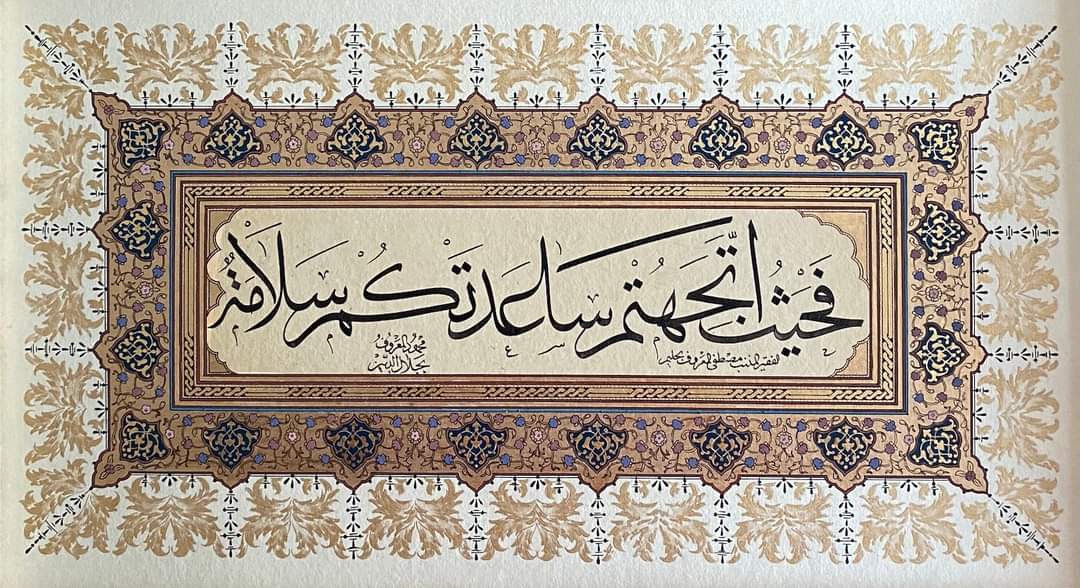 فَحَيْثُ اتَّجَهْتُمْ سَاعَدَتْكُمْ سَلَامَةٌ
الفقير المذنب مصطفى المعروف بحليم
محمود المعروف
بجلال الدين